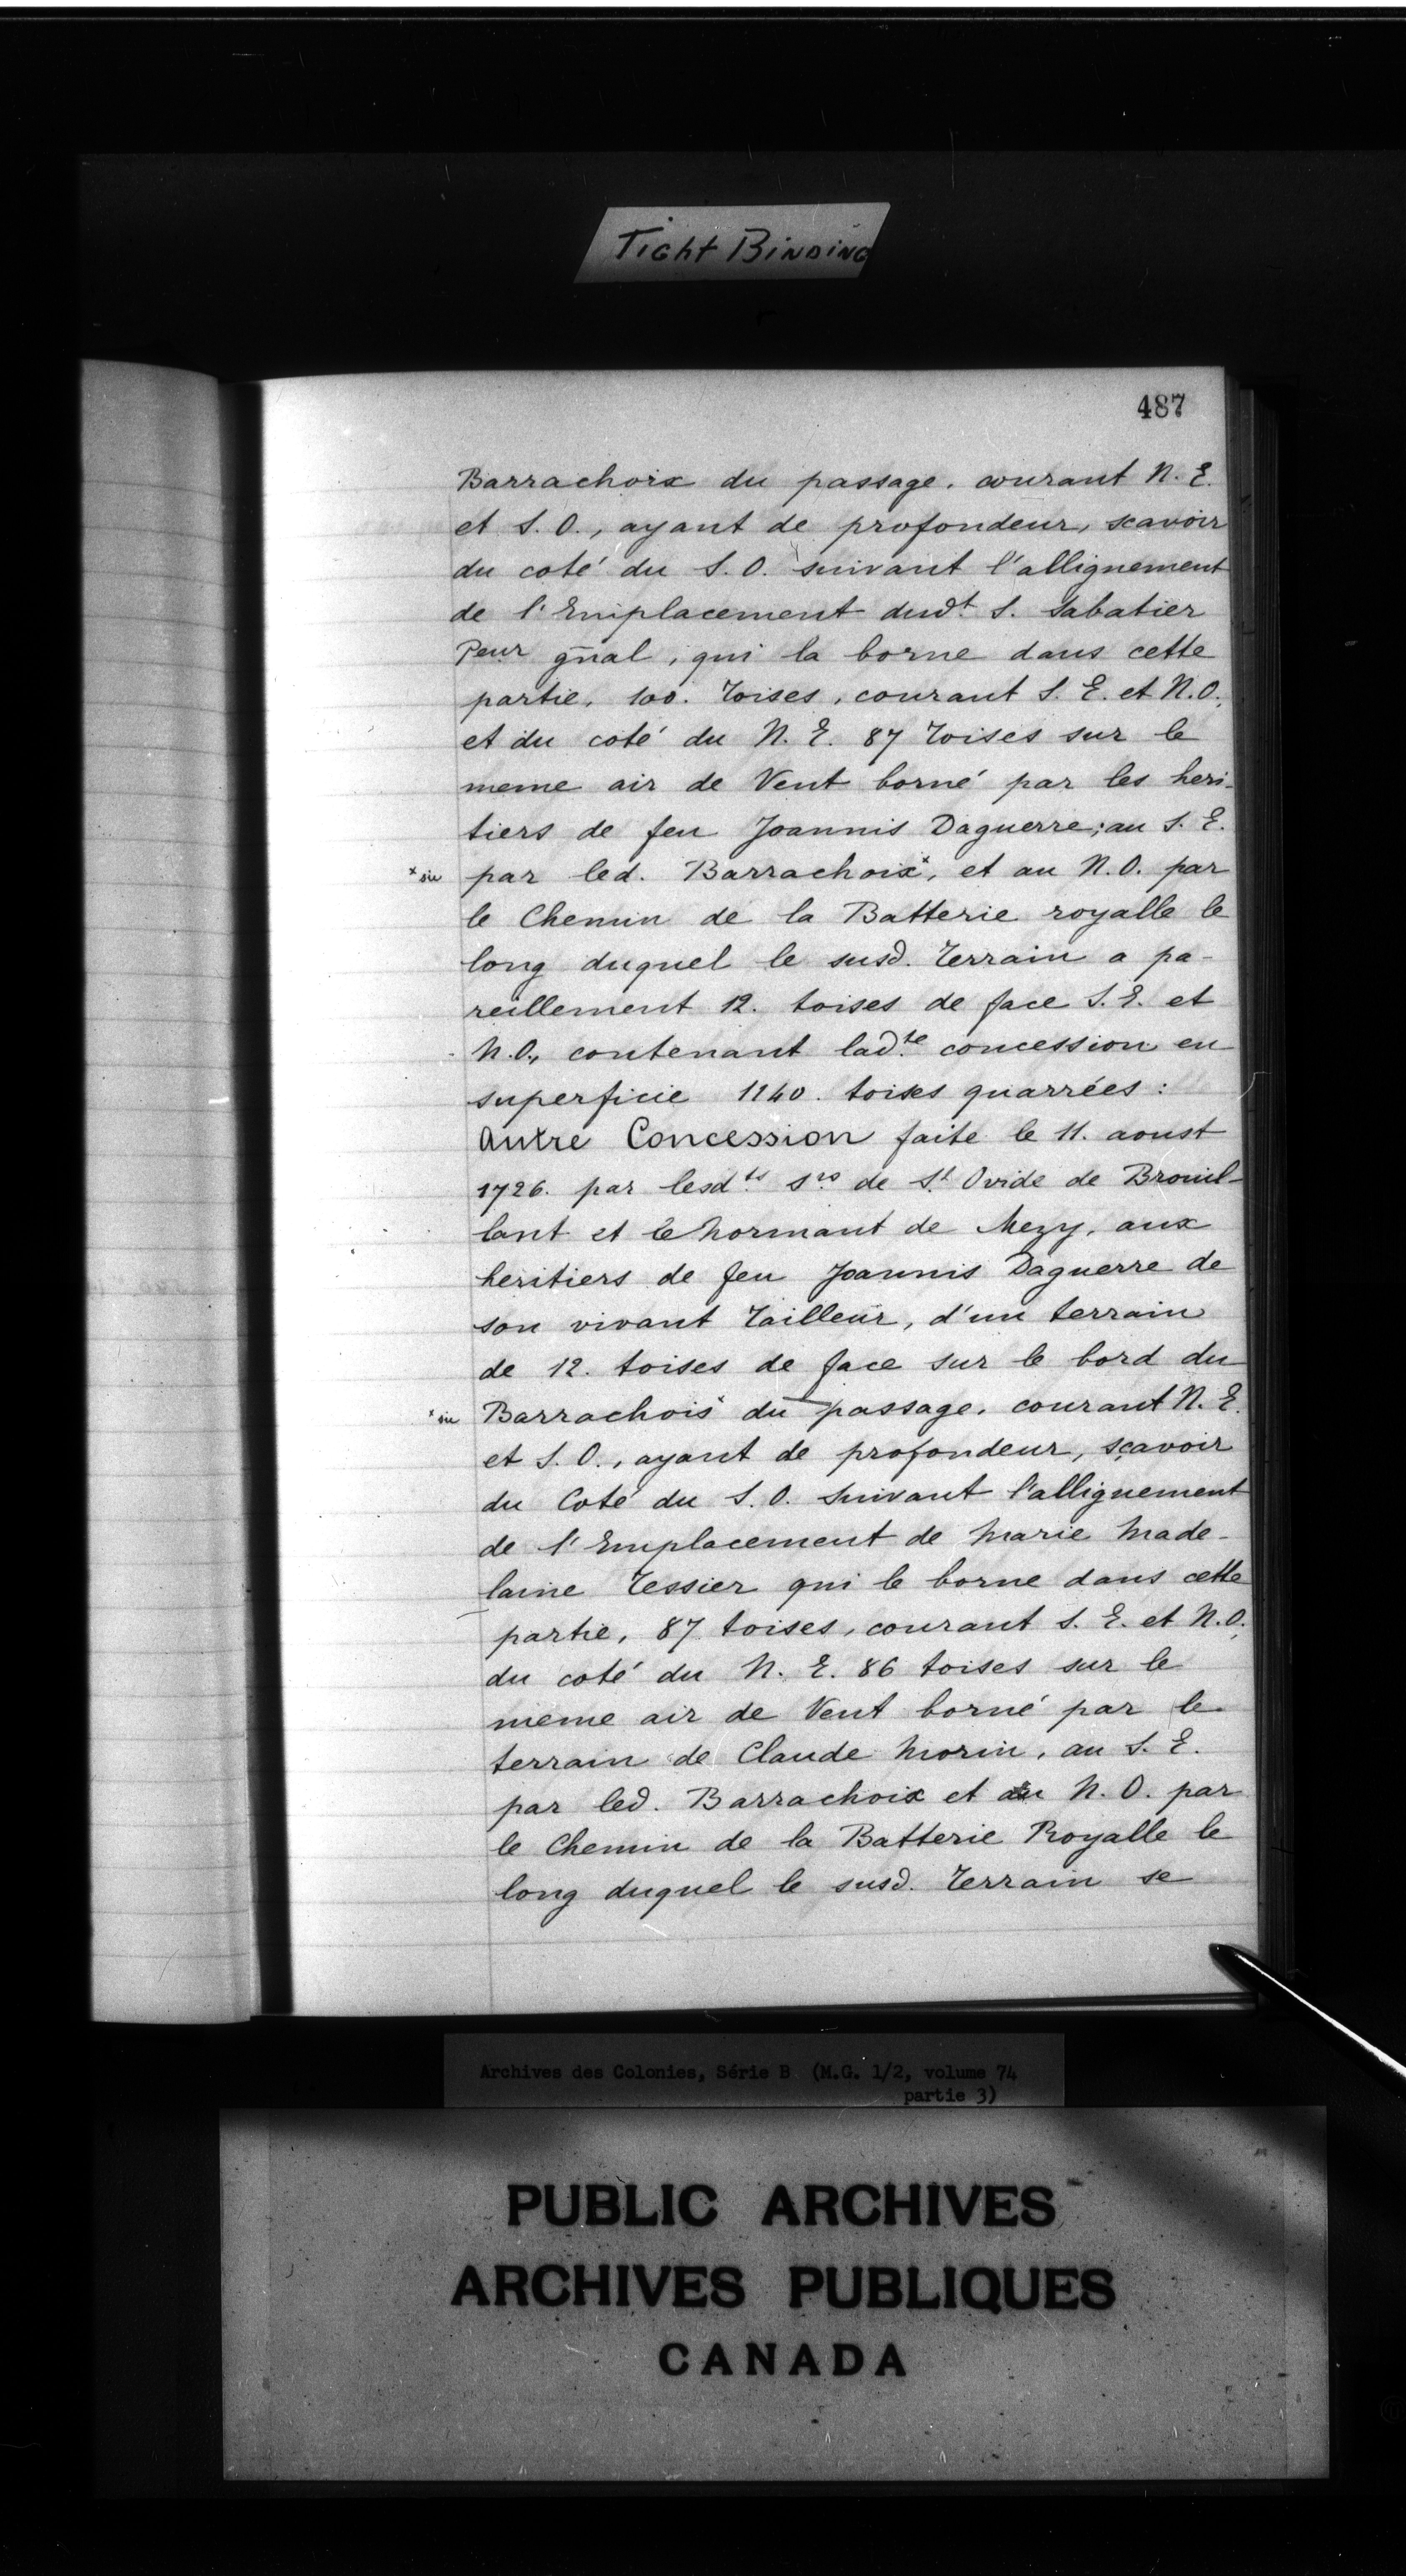 Tight Binding
487
Barrachoix du passage, courant N. E.
et S. O., ayant de profondeur, scavoir
du coté du S. O. suivant l'allignement
de l'Emplacement dudt. S. Sabatier
Peur gñal, qui la borne dans cette
partie, 100. Toises, courant S. E. et N.O.,
et du coté du N. E. 87 Toises sur le
meme air de Vent borné par les heri-
tiers de feu Joannis Daguerre; au S. E.
*sic par led. Barrachoix*, et au N.O. par
le Chemin de la Batterie royalle le
long duquel le susd. Terrain a pa-
reillement 12. toises de face S. E. et
N.O., contenant ladte. concession en
superficie 1140. toises quarrées :
Autre Concession faite le 11. aoust
1726. par lesdts. srs. de St. Ovide de Brouil-
lant et le Normant de Mezy, aux
heritiers de feu Joannis Daguerre de
son vivant Tailleur, d'un terrain
de 12. toises de face sur le bord du
*sic Barrachois* du passage, courant N. E.
et S. O., ayant de profondeur, sçavoir
du Coté du S. O. suivant l'allignement
de l'Emplacement de Marie Made-
laine Tessier qui le borne dans cette
partie, 87 toises, courant S. E. et N.O.,
du coté du N. E. 86 toises sur le
meme air de Vent borné par le
terrain de Claude Morin, au S. E.
par led. Barrachoix et au N. O. par
le Chemin de la Batterie Royalle le
long duquel le susd. Terrain se
Archives des Colonies, Série B (M.G. 1/2, volume 74
partie 3)
PUBLIC ARCHIVES
ARCHIVES PUBLIQUES
CANADA